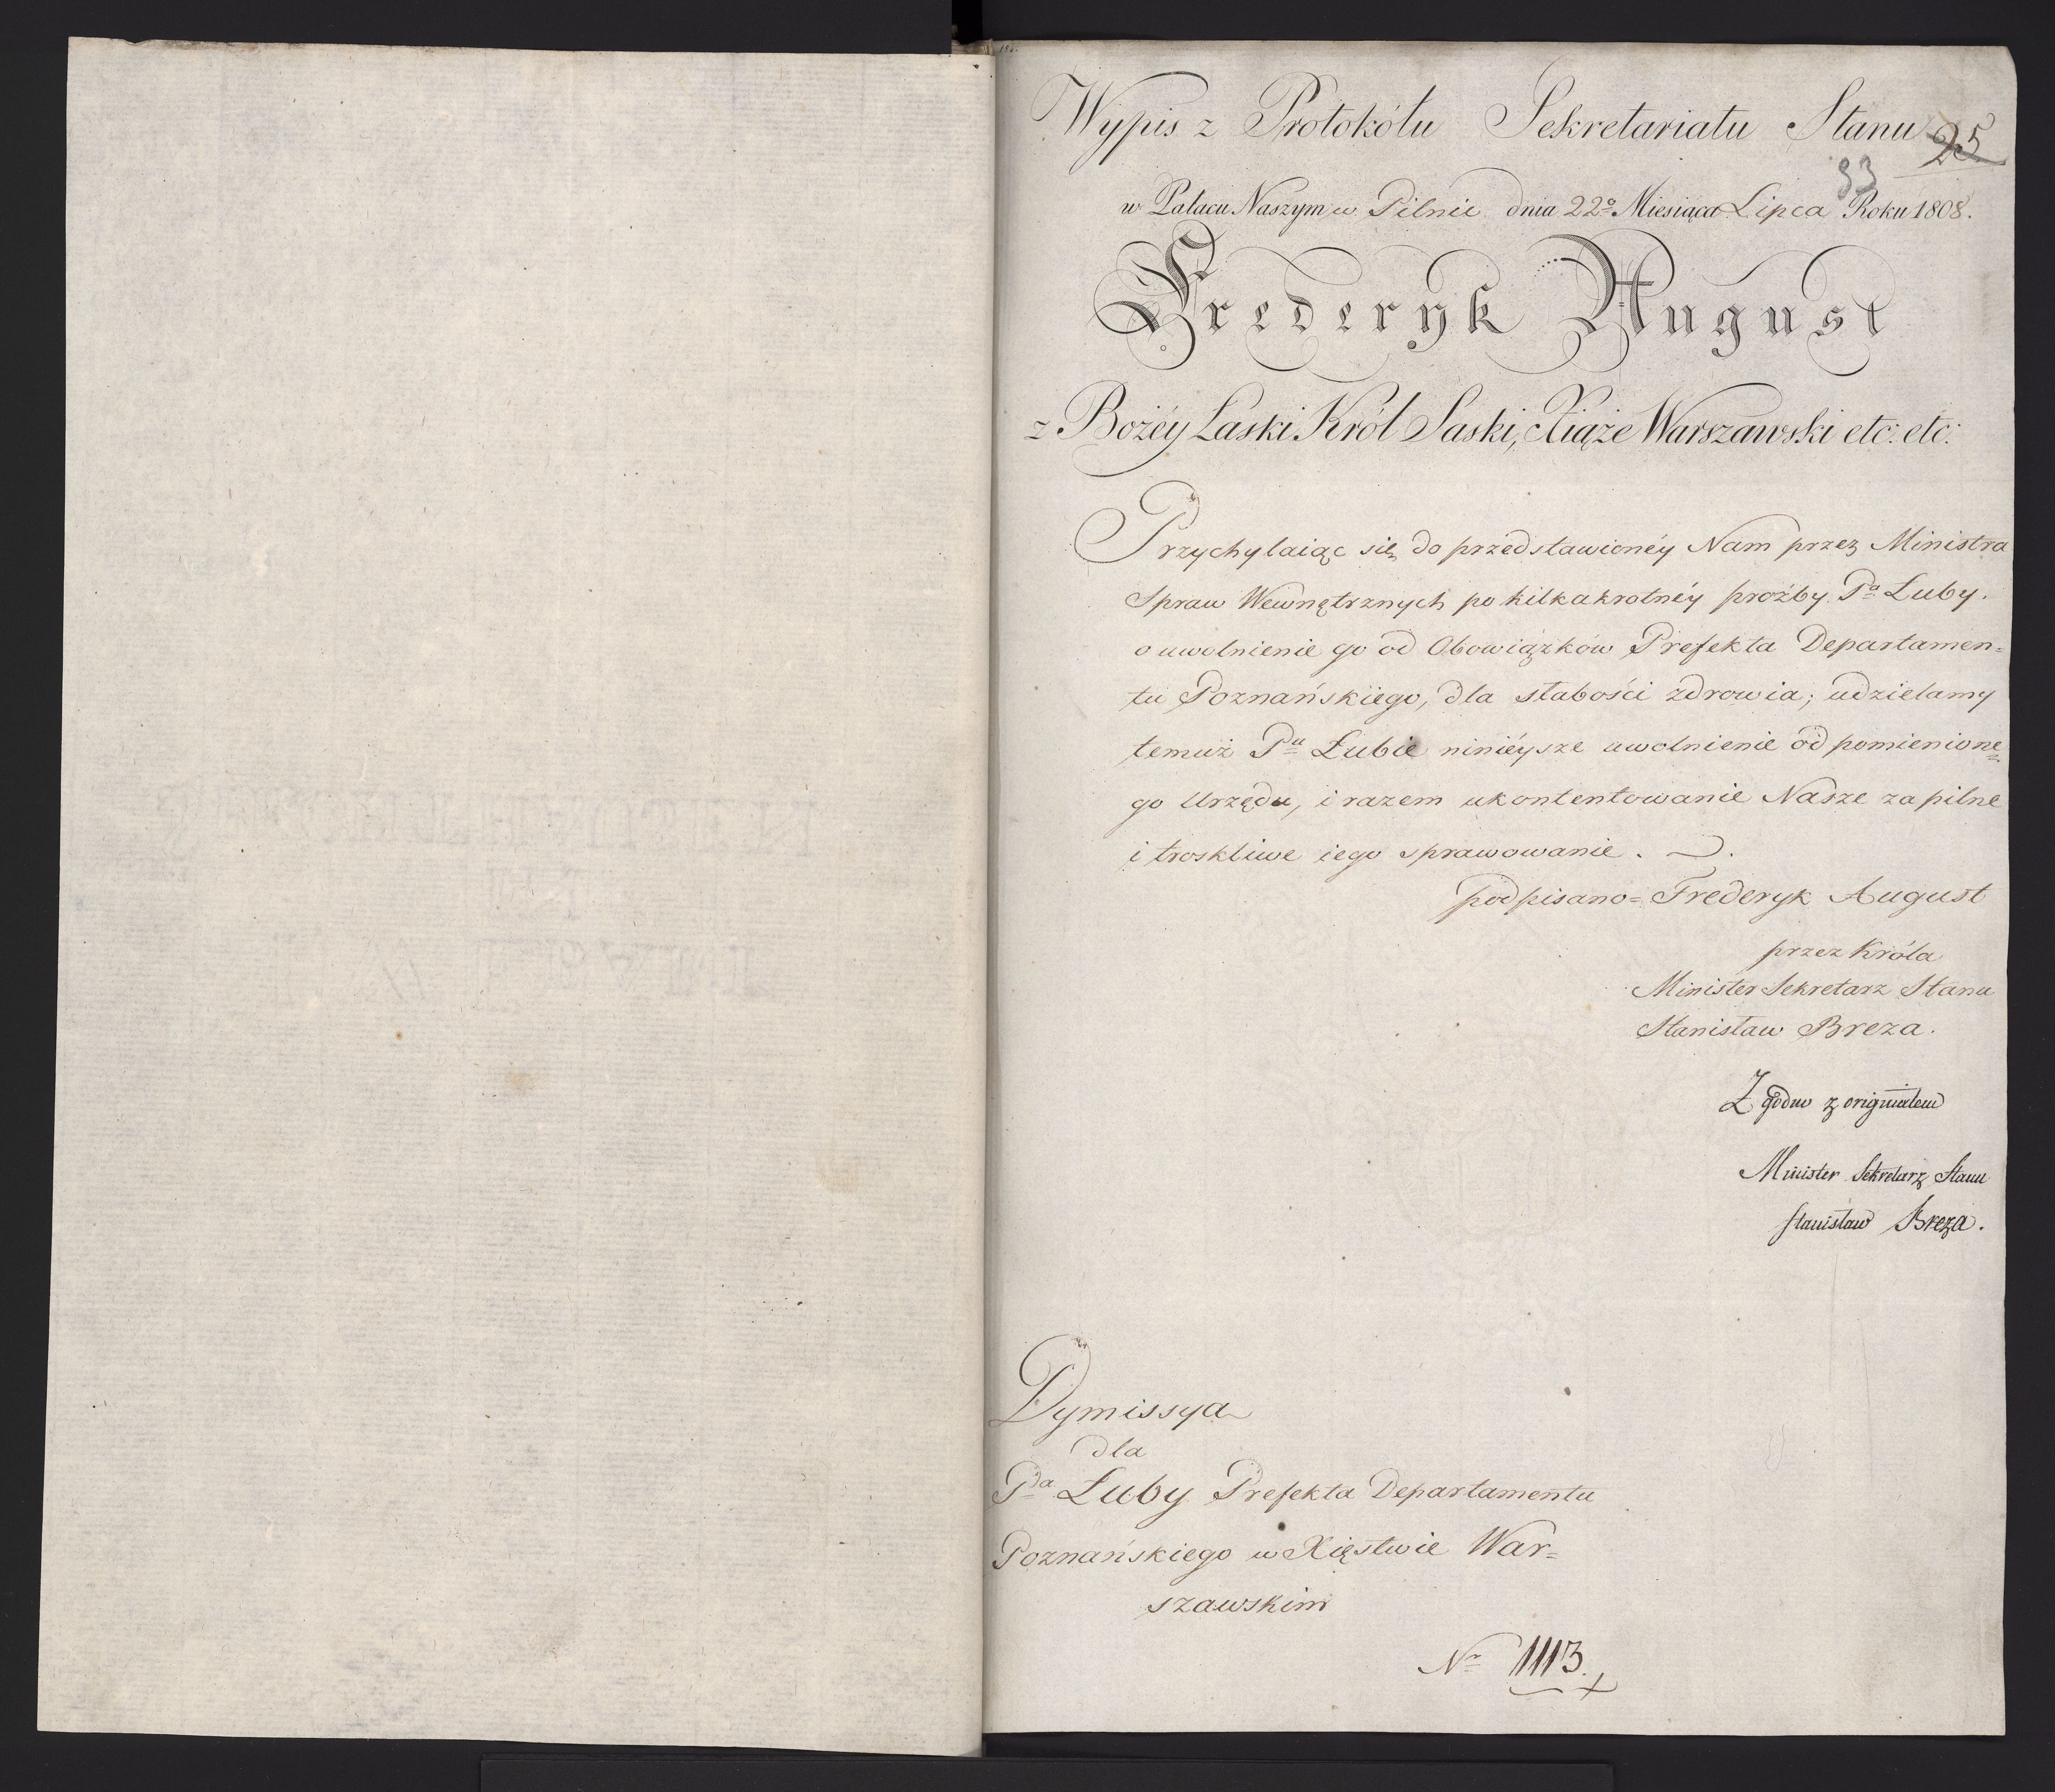 Wypis z Protokółu Sekretariatu Stanu
25
93
w Pałacu Naszym w Pilnic dnia 22º Miesiąca Lipca Roku 1808.
Frederyk August
z Bożéy Łaski Król Saski, Xiąże Warszawski etc: etc:
Przychylaiąc się do przedstawionéy Nam przez Ministra
Spraw Wewnętrznych po kilkakrotnéy proźby Pa Łuby.
o uwolnienie go od Obowiązków Prefekta Departamen=
tu Poznańskiego, dla słabości zdrowia; udzielamy
temuż Pu Łubie niniéysze uwolnienie od pomienione=
go Urzędu, i razem ukontentowanie Nasze za pilne
i troskliwe iego sprawowanie.
podpisano= Frederyk August
przez Króla
Minister Sekretarz Stanu
Stanisław Breza.
Zgodno z originałem
Minister Sekretarz Stanu
Stanisław Breza.
Dymissya
dla
Pa Łuby Prefekta Departamentu
Poznańskiego w Xięstwie War=
szawskim
Nr 1113.